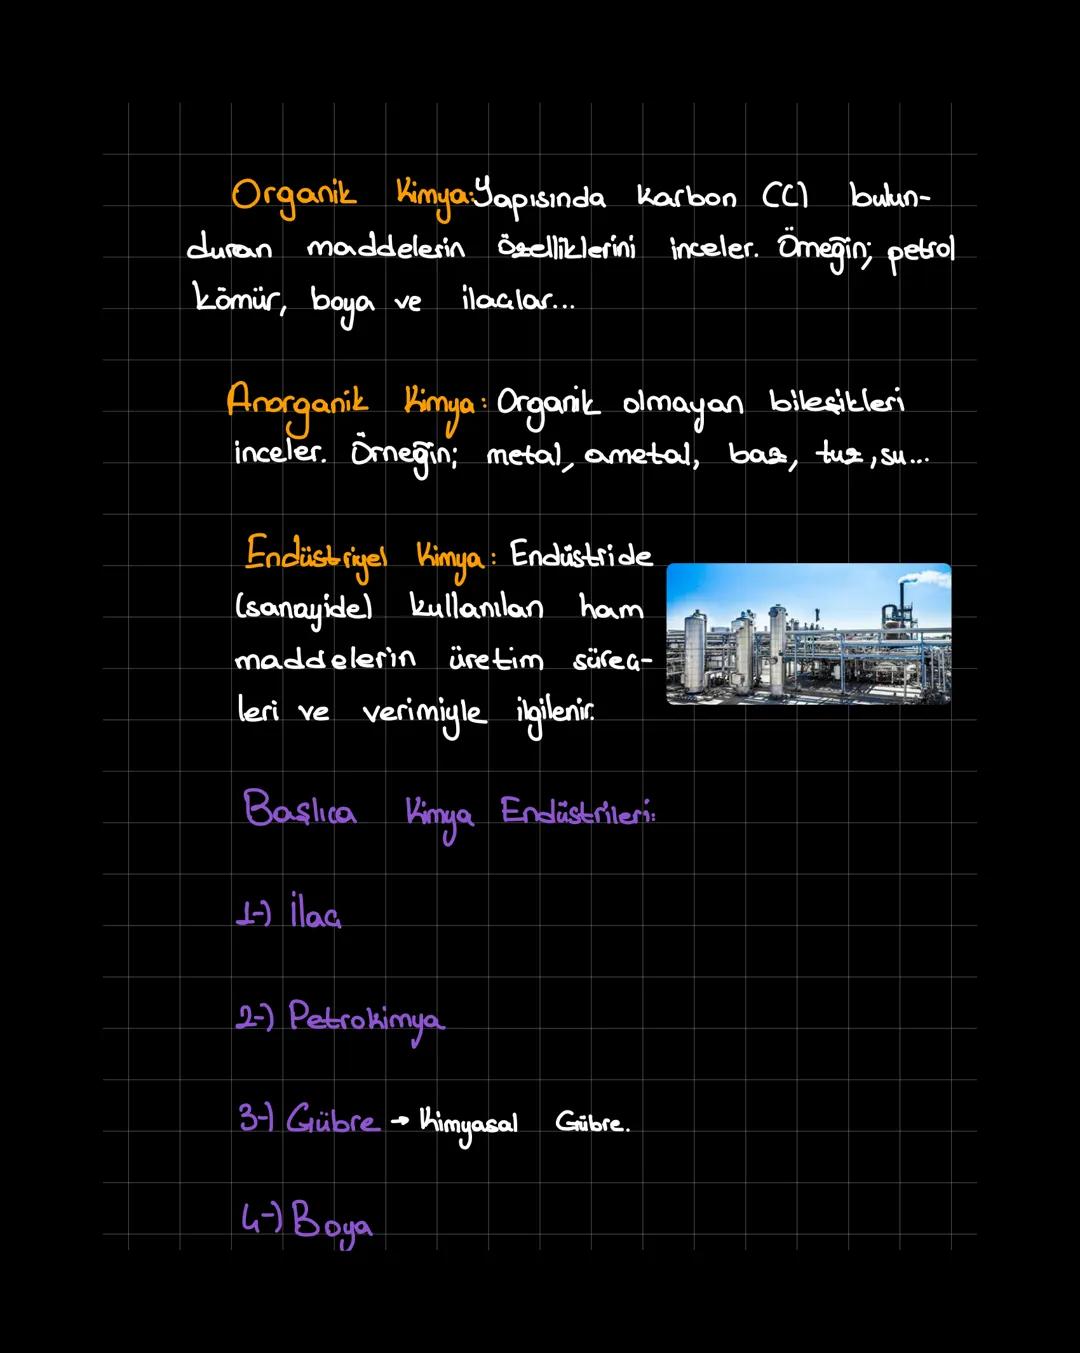 Organik Kimya: Yapısında karbon (C) bulun-
duran maddelerin özelliklerini inceler. Örneğin; petrol
kömür, boya ve ilaçlar...
Anorganik Kimya: Organik olmayan bileşikleri
inceler. Örneğin; metal, ametal, baz, tuz, su...
Endüstriyel Kimya: Endüstride
(sanayide) kullanılan ham
maddelerin üretim süreç-
leri ve verimiyle ilgilenir.
Başlıca Kimya Endüstrileri:
1-) İlaç
2-) Petrokimya
3-) Gübre → Kimyasal Gübre.
4-) Boya